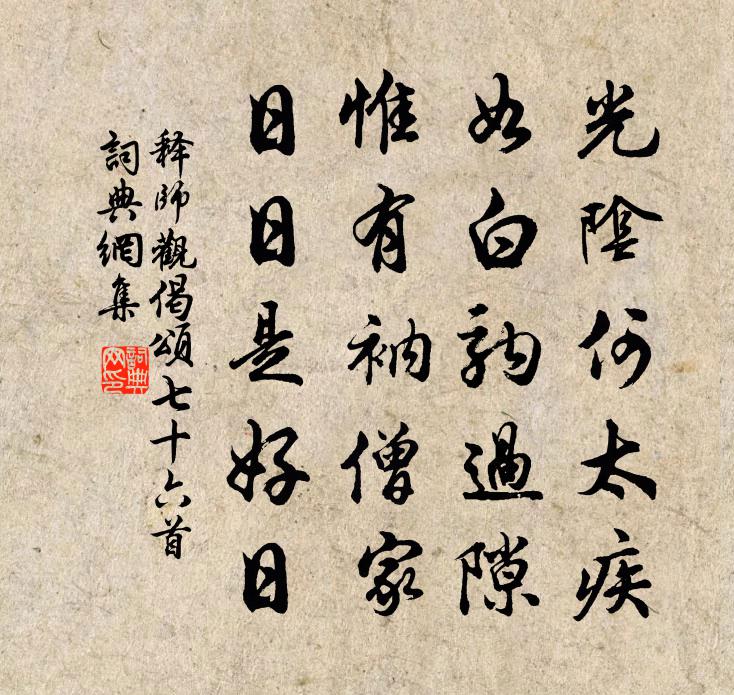 光陰何太疾
如白駒過隙
惟有衲僧家
日日是好日
释師觀偈頌七十六首
詞典網集
詞典网印